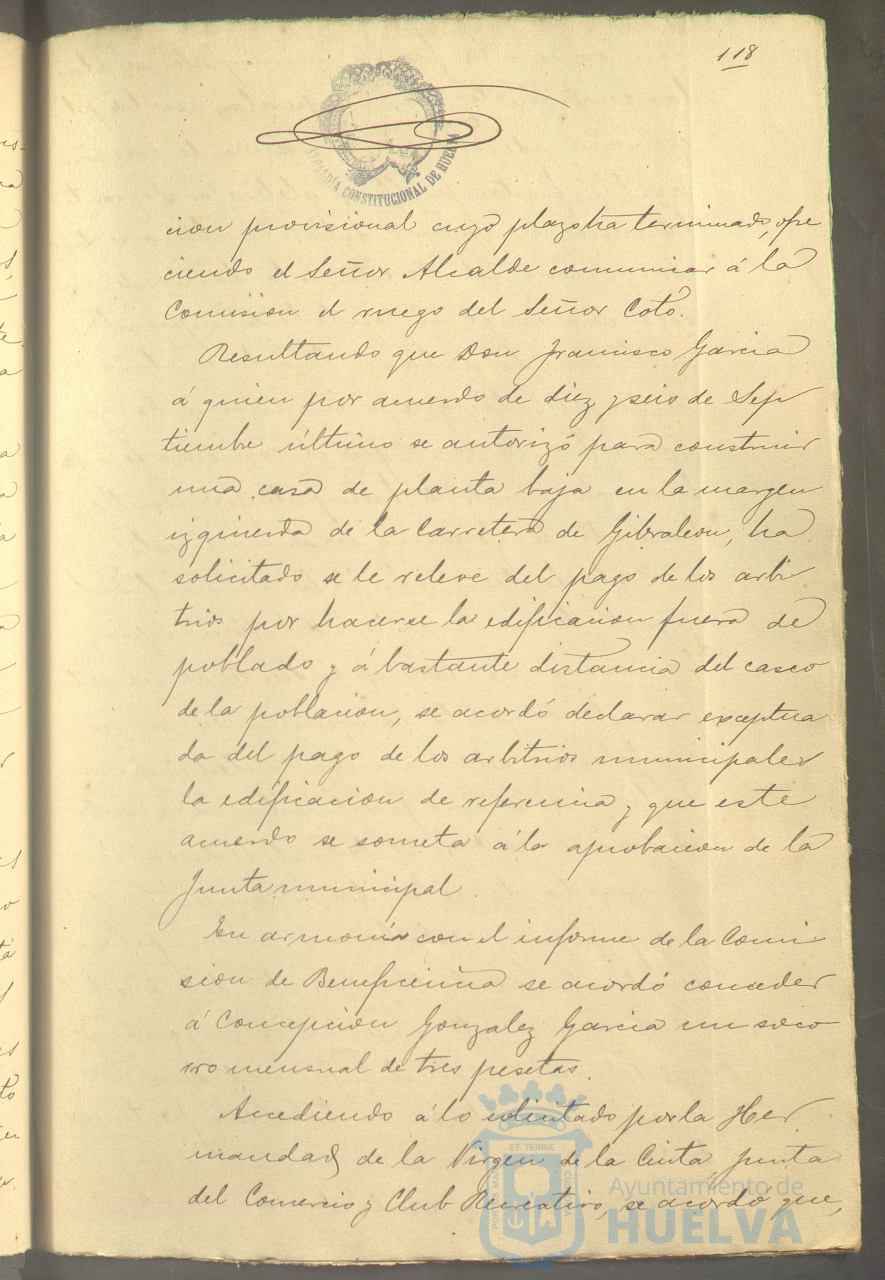 118
ALCALDÍA CONSTITUCIONAL DE HUELVA
cion provisional cuyo plazo ha terminado, ofre
ciendo el Señor Alcalde comunicar á la
Comision el ruego del Señor Coto.
Resultando que Don Francisco Garcia
á quien por acuerdo de diez y seis de Sep
tiembre último se autorizó para construir
una casa de planta baja en la margen
izquierda de la Carretera de Gibraleon, ha
solicitado se le releve del pago de los arbi
trios por hacerse la edificacion fuera de
poblado y á bastante distancia del casco
de la poblacion, se acordó declarar exceptua
da del pago de los arbitrios municipales
la edificacion de referencia y que este
acuerdo se someta á la aprobacion de la
Junta municipal.
En armonia con el informe de la Comi
sion de Beneficencia se acordó conceder
á Concepcion Gonzalez Garcia un soco
rro mensual de tres pesetas.
Accediendo á lo solicitado por la Her
mandad de la Virgen de la Cinta Junta
del Comercio y Club Recreativo, se acordó que,
ET TERRÆ
Ayuntamiento de
HUELVA